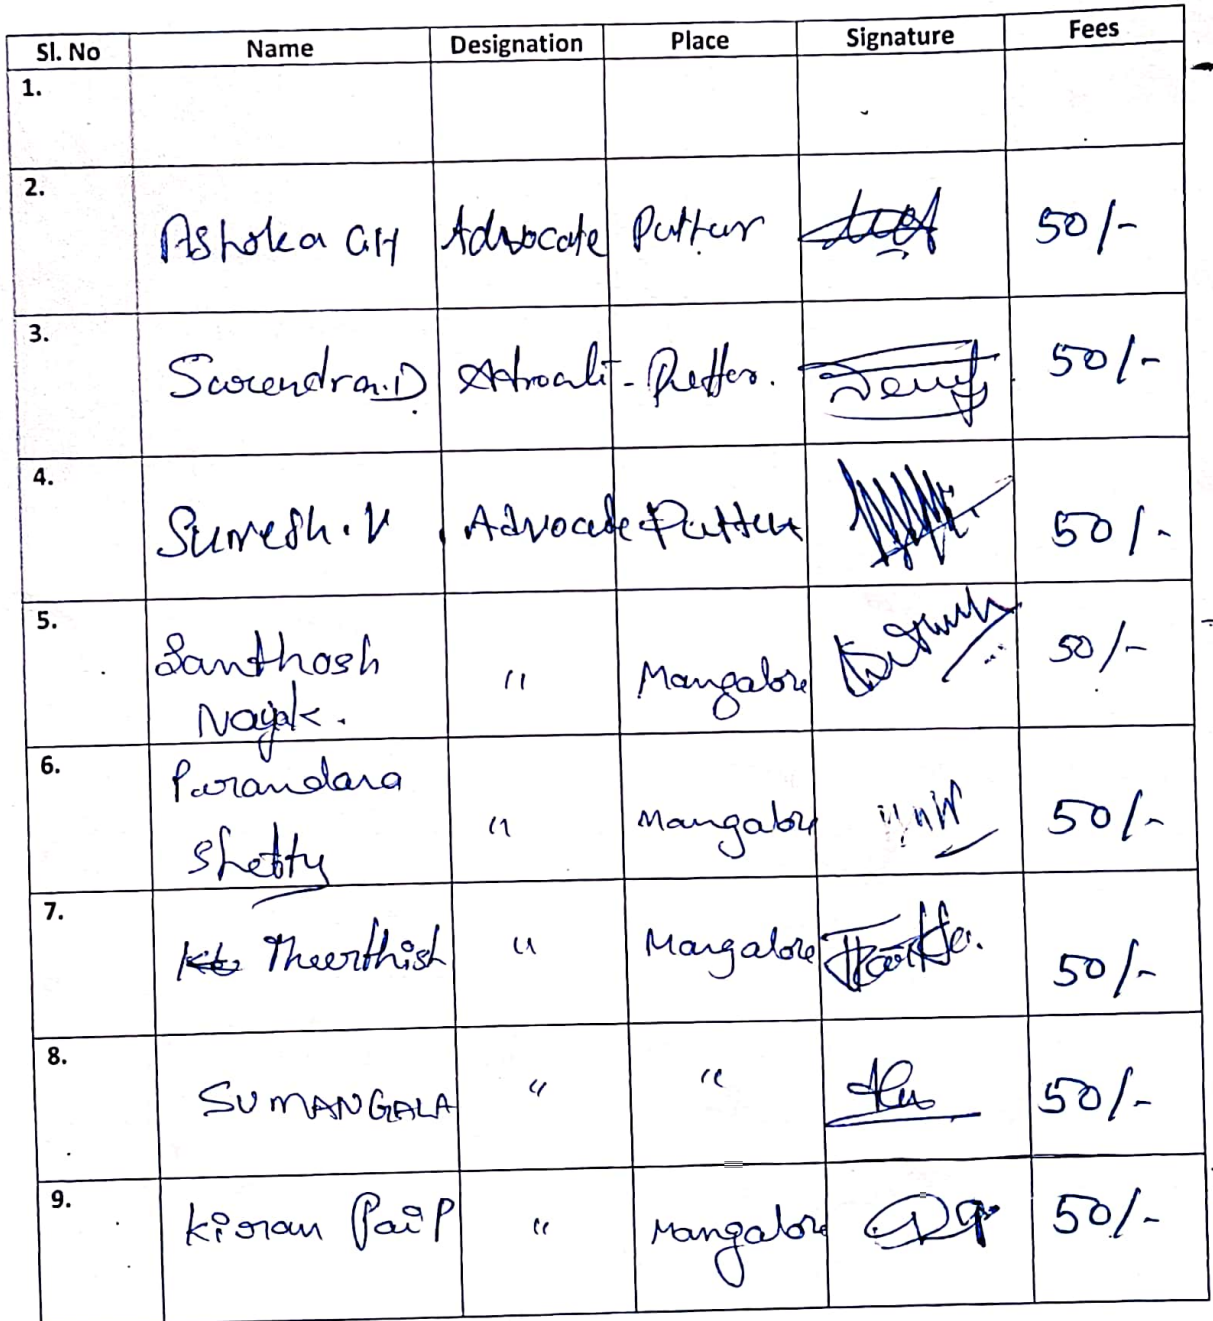 Sl. No Name Designation Place Signature Fees
1.
2. Ashoka GH Advocate Puttur 50/-
3. Surendra.D - Puttur. 50/-
4. Suresh.V Advocate Puttur 50/-
5. Santhosh " Mangalore 50/-
Nayak.
6. Purandara " Mangalore 50/-
Shetty
7. Theerthish " Mangalore 50/-
8. SUMANGALA " " 50/-
9. Kiran Pai P " Mangalore 50/-